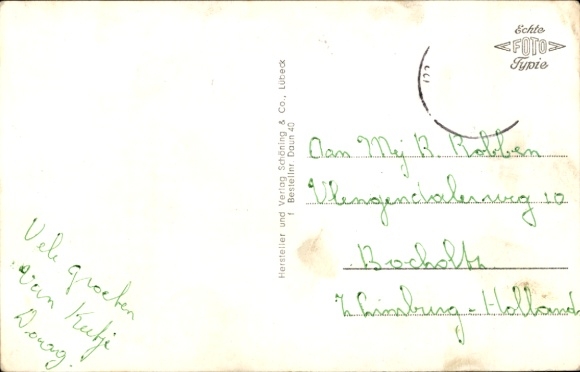 Echte
FOTO
Typie
Hersteller und Verlag Schöning & Co., Lübeck
f Bestellnr Daun 40
Aan Mej R. Robben
Vlengendalerweg 10
Bocholtz
Z Limburg - Holland
Vele groeten
van